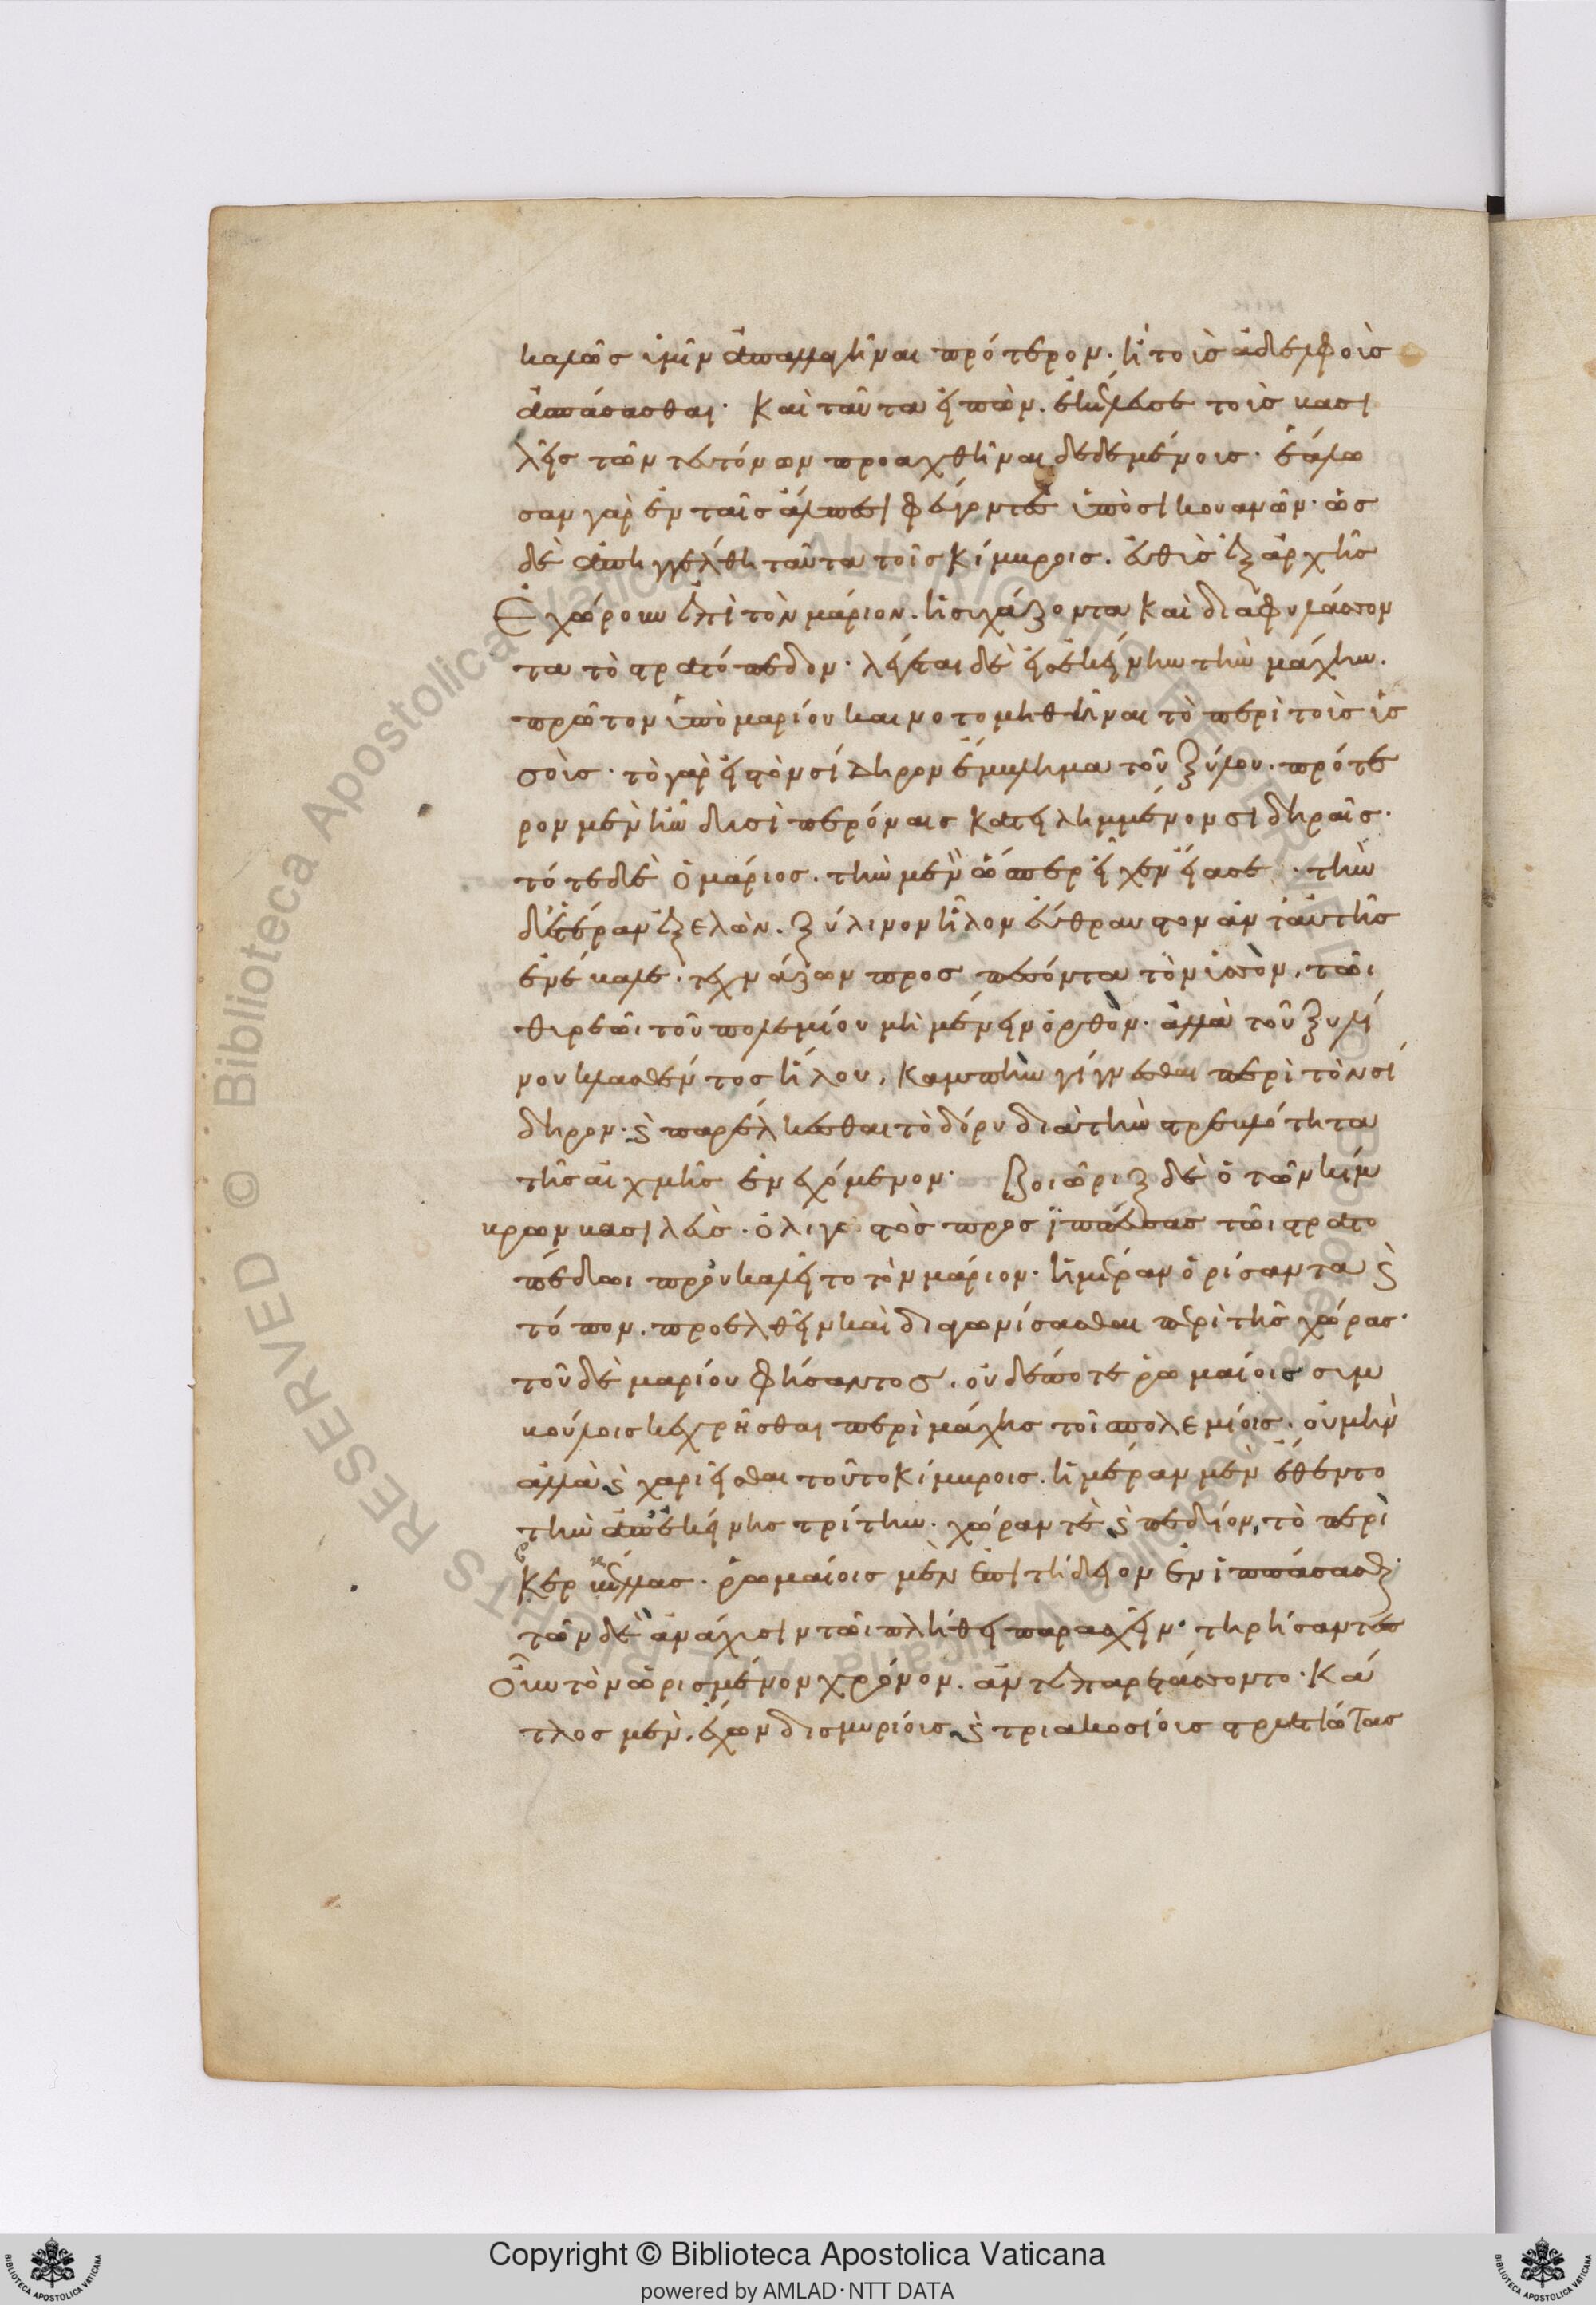 καλῶς ὑμῖν ἀπαλλαγῆναι πρότερον· ἢ τοὺς ἀδελφοὺς
ἀσπάσασθαι· καὶ ταῦτα εἰπὼν. ἐκέλευσε τοὺς βασι
λεῖς τῶν τευτόνων προαχθῆναι δεδεμένους· ἑάλω
σαν γὰρ ἐν ταῖς ἄλπεσι φεύγοντες ὑπὸ σικουανῶν· ὡς
δὲ ἀπηγγέλθη ταῦτα τοῖς κίμβροις. εὐθὺς ἐξ ἀρχῆς
ἐχώρουν ἐπὶ τὸν μάριον. ἡσυχάζοντα καὶ διαφυλάττον
τα τὸ στρατόπεδον· λέγεται δὲ εἰς ἐκείνην τὴν μάχην.
πρῶτον ὑπὸ μαρίου καινοτομηθῆναι τὸ περὶ τοὺς ὑσ
σούς· τὸ γὰρ εἰς τὸν σίδηρον ἔμβλημα τοῦ ξύλου. πρότε
ρον μὲν ἦν δυσὶ περόναις κατειλημμένον σιδηραῖς·
τότε δὲ ὁ μάριος. τὴν μὲν ὥσπερ εἶχεν εἴασε· τὴν
δ' ἑτέραν ἐξελὼν. ξύλινον ἧλον εὔθραυστον ἀντ' αὐτῆς
ἐνέβαλε· τεχνάζων προσπεσόντα τὸν ὑσσὸν. τῶι
θυρεῶι τοῦ πολεμίου μὴ μένειν ὀρθὸν· ἀλλὰ τοῦ ξυλί
νου κλασθέντος ἥλου, καμπὴν γίγνεσθαι περὶ τὸν σί
δηρον· καὶ παρέλκεσθαι τὸ δόρυ διὰ τὴν στρεβλότητα
τῆς αἰχμῆς ἐνεχόμενον· βοιῶριξ δὲ ὁ τῶν κίμ
βρων βασιλεὺς· ὀλιγοστὸς προσϊππεύσας τῶι στρατο
πέδωι προὐκαλεῖτο τὸν μάριον· ἡμέραν ὁρίσαντα καὶ
τόπον. προελθεῖν καὶ διαγωνίσασθαι περὶ τῆς χώρας·
τοῦ δὲ μαρίου φήσαντος. οὐδέποτε ῥωμαίους συμ
βούλοις κεχρῆσθαι περὶ μάχης τοῖς πολεμίοις. οὐ μὴν
ἀλλὰ καὶ χαριεῖσθαι τοῦτο κίμβροις. ἡμέραν μὲν ἔθεντο
τὴν ἀπ' ἐκείνης τρίτην. χώραν τὲ καὶ πεδίον, τὸ περὶ
βερκέλλας. ῥωμαίοις μὲν ἐπιτήδειον ἐνιππάσασθαι·
τῶν δὲ ἀνάχυσιν τῶι πλήθει παρασχεῖν· τηρήσαντες
οὖν τὸν ὡρισμένον χρόνον. ἀντιπαρετάσσοντο· κά
τλος μὲν. ἔχων δισμυρίους καὶ τριακοσίους στρατιώτας